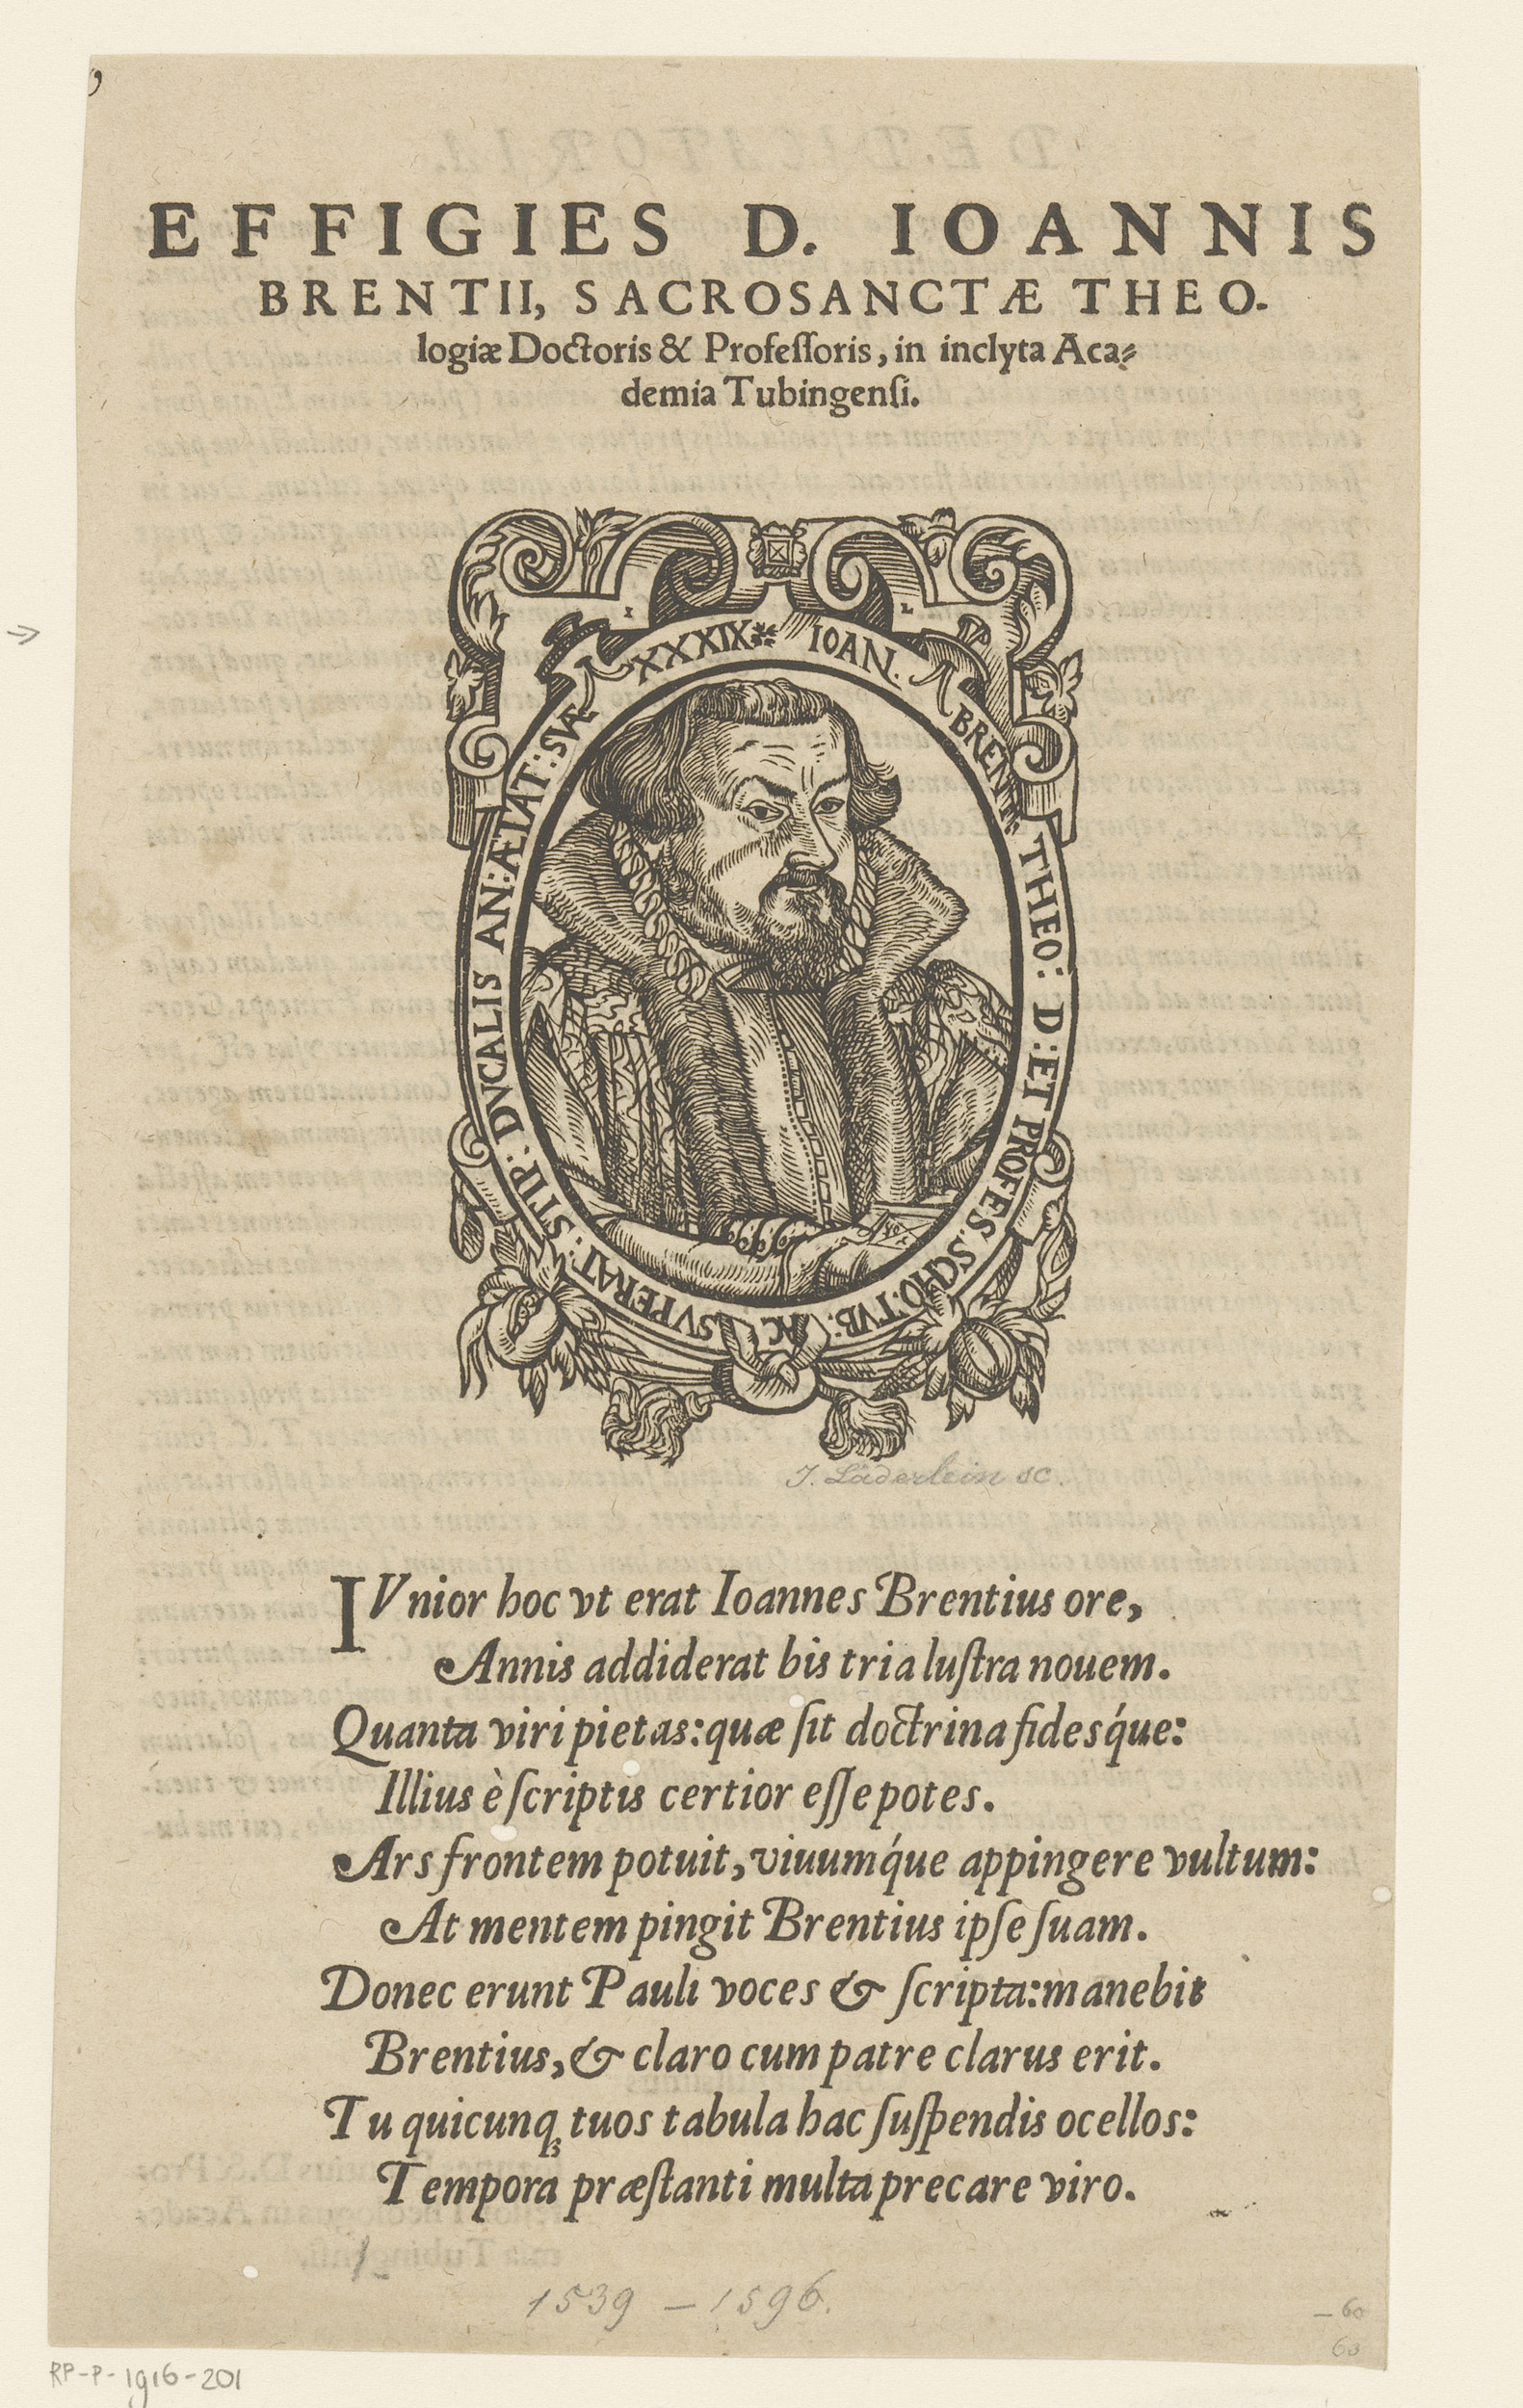 EFFIGIES D. IOANNIS
BRENTII, SACROSANCTÆ THEO-
logiæ Doctoris & Profeſſoris, in inclyta Aca⸗
demia Tubingenſi.
IOAN. BRENTI: THEO: D: ET PROFES. SCHO: TVB: AC SVPERAT: STIP: DVCALIS AN: ÆTAT: SVÆ XXXIX
I L
J. Läderlein sc.
IVnior hoc vt erat Ioannes Brentius ore,
Annis addiderat bis tria luſtra nouem.
Quanta viri pietas: quæ ſit doctrina fidesq́ue:
Illius è ſcriptis certior eſſe potes.
Ars frontem potuit, viuumq́ue appingere vultum:
At mentem pingit Brentius ipſe ſuam.
Donec erunt Pauli voces & ſcripta: manebit
Brentius, & claro cum patre clarus erit.
Tu quicunqꝫ tuos tabula hac ſuſpendis ocellos:
Tempora præſtanti multa precare viro.
1539 – 1596.
– 60
60
RP-P-1916-201